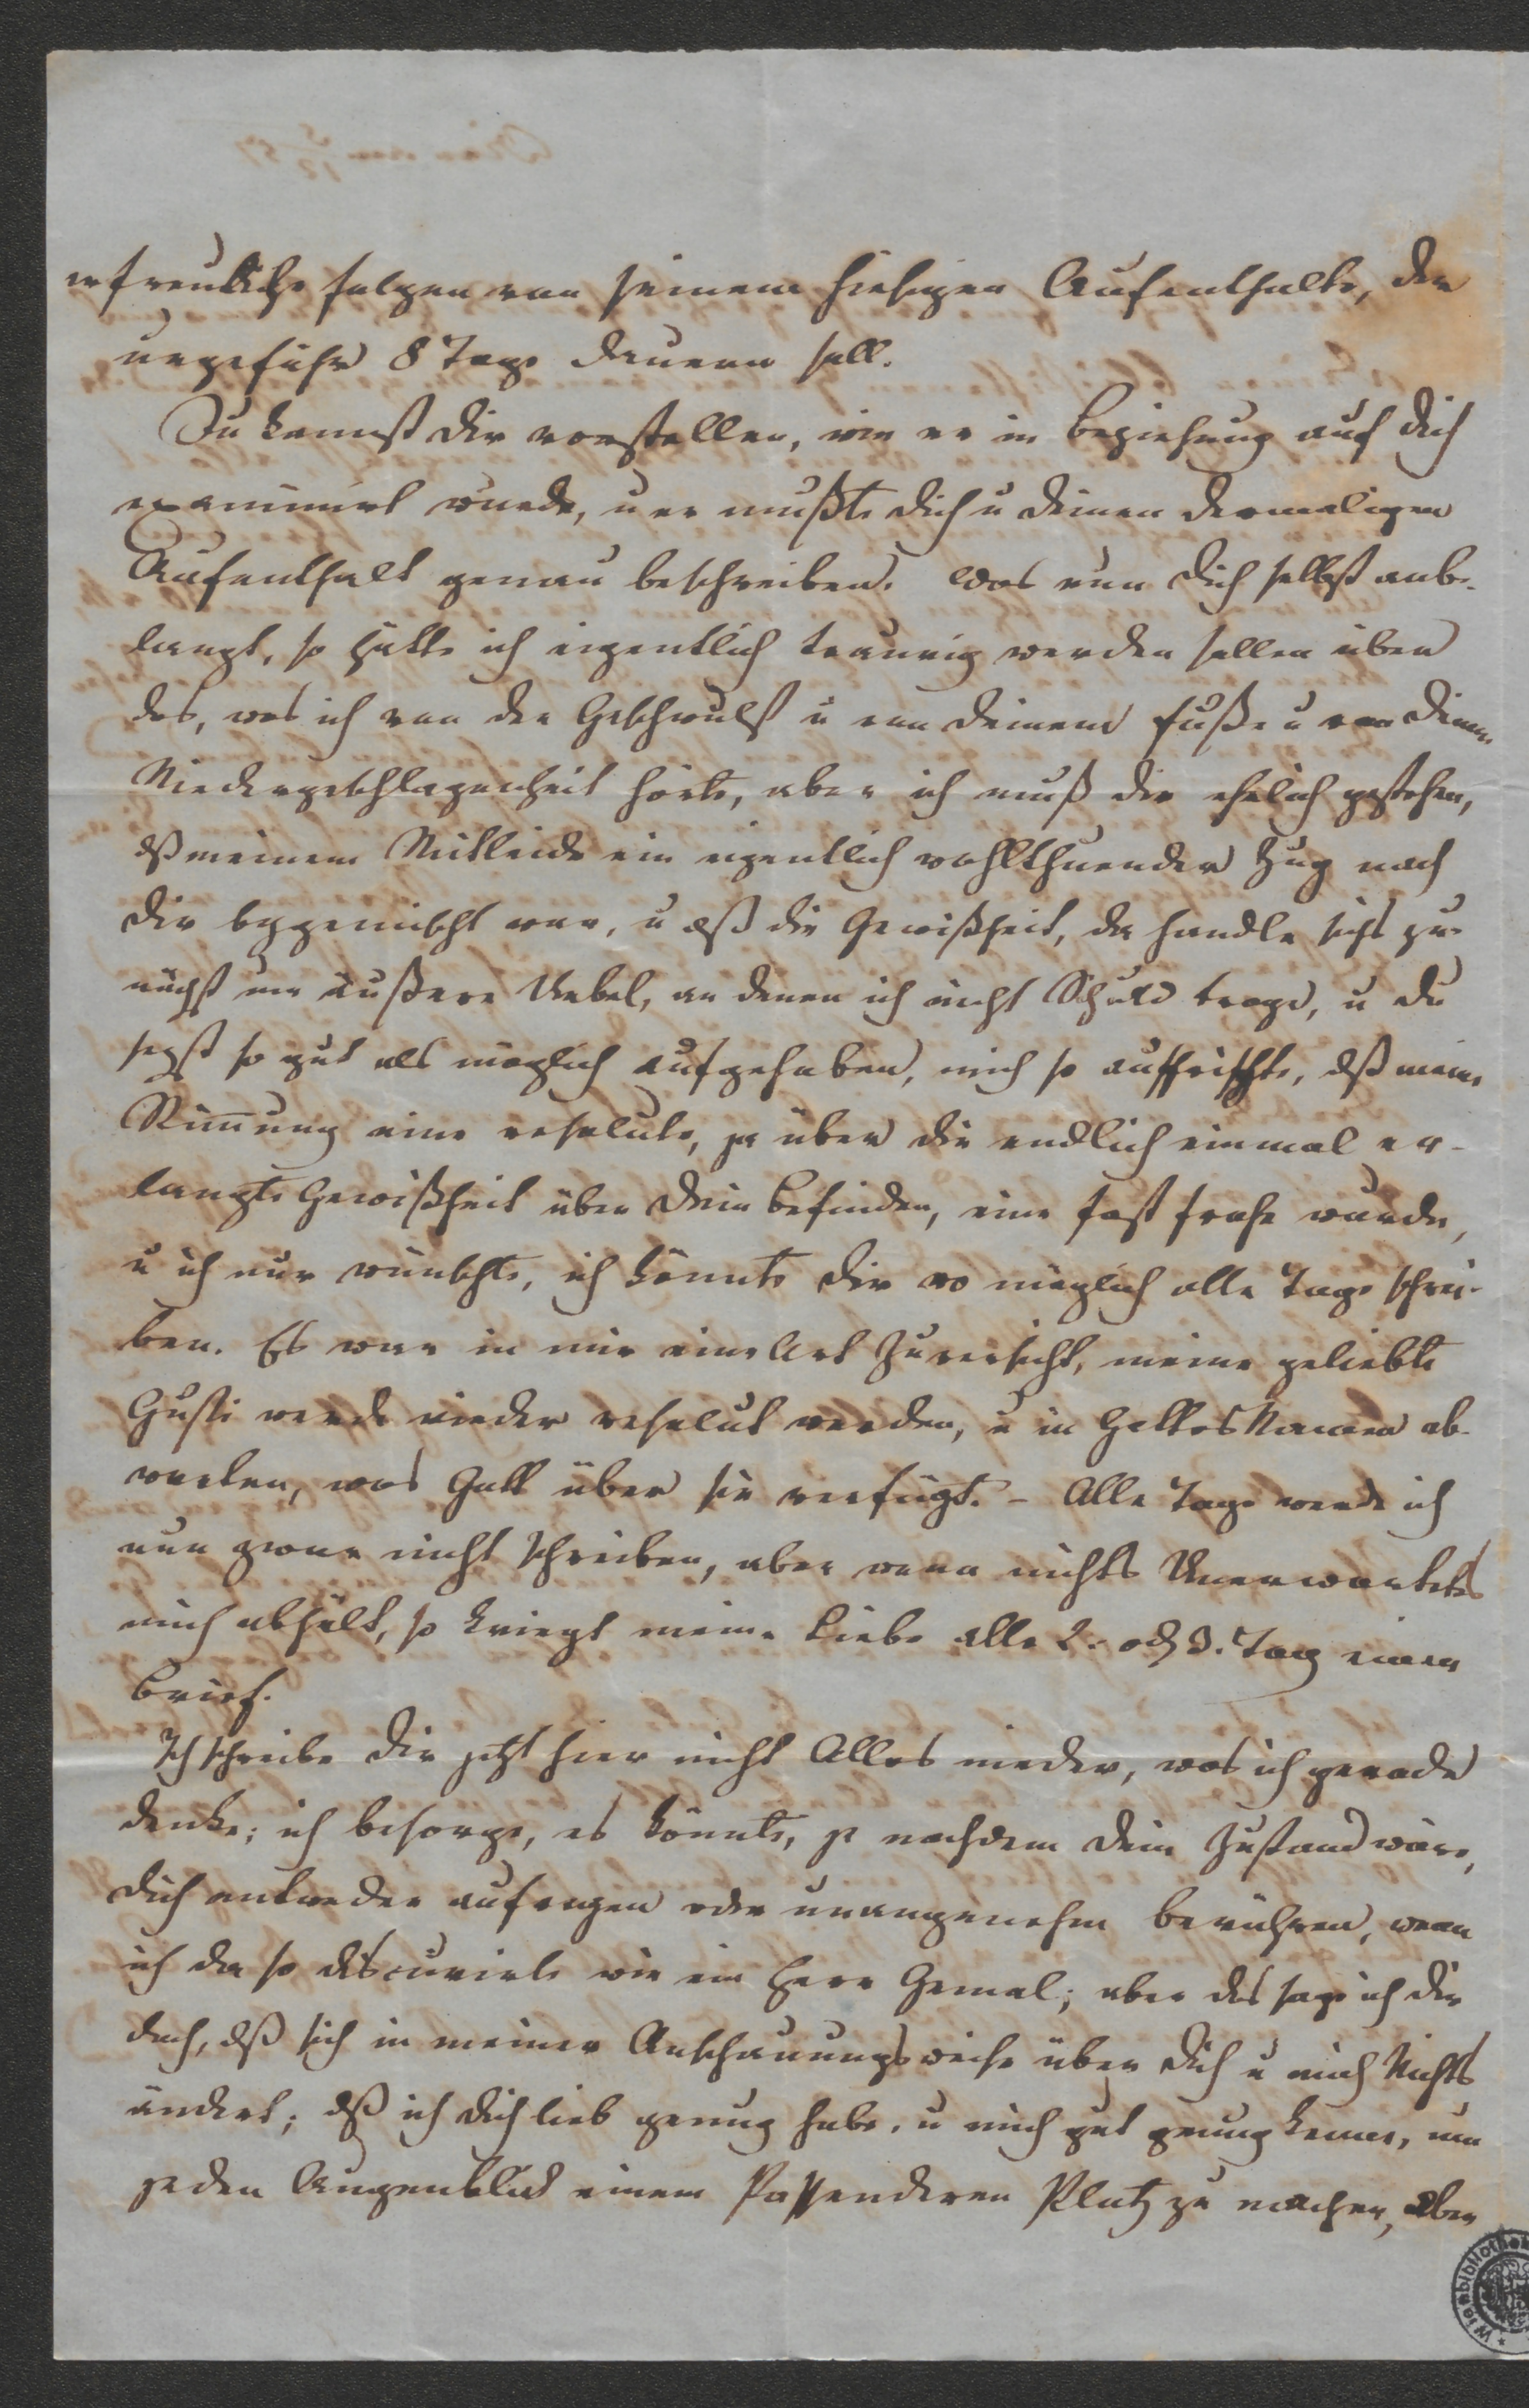 erfreuliche Folgen von seinem hiesigen Aufenthalte, der
ungefähr 8 Tage dauern soll.
Du kannst dir vorstellen, wie er in Beziehung auf dich
examinirt wurde, u er mußte dich u deinen dermaligen
Aufenthalt genau beschreiben. Was nun dich selbst anbe-
langt, so hätte ich eigentlich traurig werden sollen über
das, was ich von der Geschwulst u von deinem Fuße u von deiner
Niedergeschlagenheit hörte, aber ich muß dir ehrlich gestehen,
dß meinem Mitleide ein eigentlich wohlthuender Zug nach
dir beygemischt war, u dß die Gewißheit, da handle sichs zu-
nächst um äußere Uebel, an denen ich nicht Schuld trage, u du
seyst so gut als möglich aufgehoben, mich so auffrischte, dß meine
Stimmung eine resolute, ja über die endlich einmal er-
langte Gewißheit über dein Befinden, eine fast frohe wurde,
u ich nur wünschte, ich könnte dir wo möglich alle Tage schrei-
ben. Es war in mir eine Art Zuversicht, meine geliebte
Gusti werde wieder resolut werden, u in Gottes Namen ab-
warten, was Gott über sie verfügt. – Alle Tage werde ich
nun zwar nicht schreiben, aber wenn nichts Unerwartetes
mich abhält, so kriegt meine Liebe alle 2. od 3. Tag einen
Brief.
Ich schreibe dir jetzt hier nicht Alles nieder, was ich gerade
denke; ich besorge, es könnte, je nachdem dein Zustand wäre,
dich entweder aufregen oder unangenehm berühren, wenn
ich da so discurirte wie ein Herr Gemal; aber das sage ich dir
doch, dß sich in meiner Anschauungsweise über dich u mich Nichts
ändert; dß ich dich lieb genug habe, u mich gut genug kenne, um
jeden Augenblick einem Passenderen Platz zu machen, aber